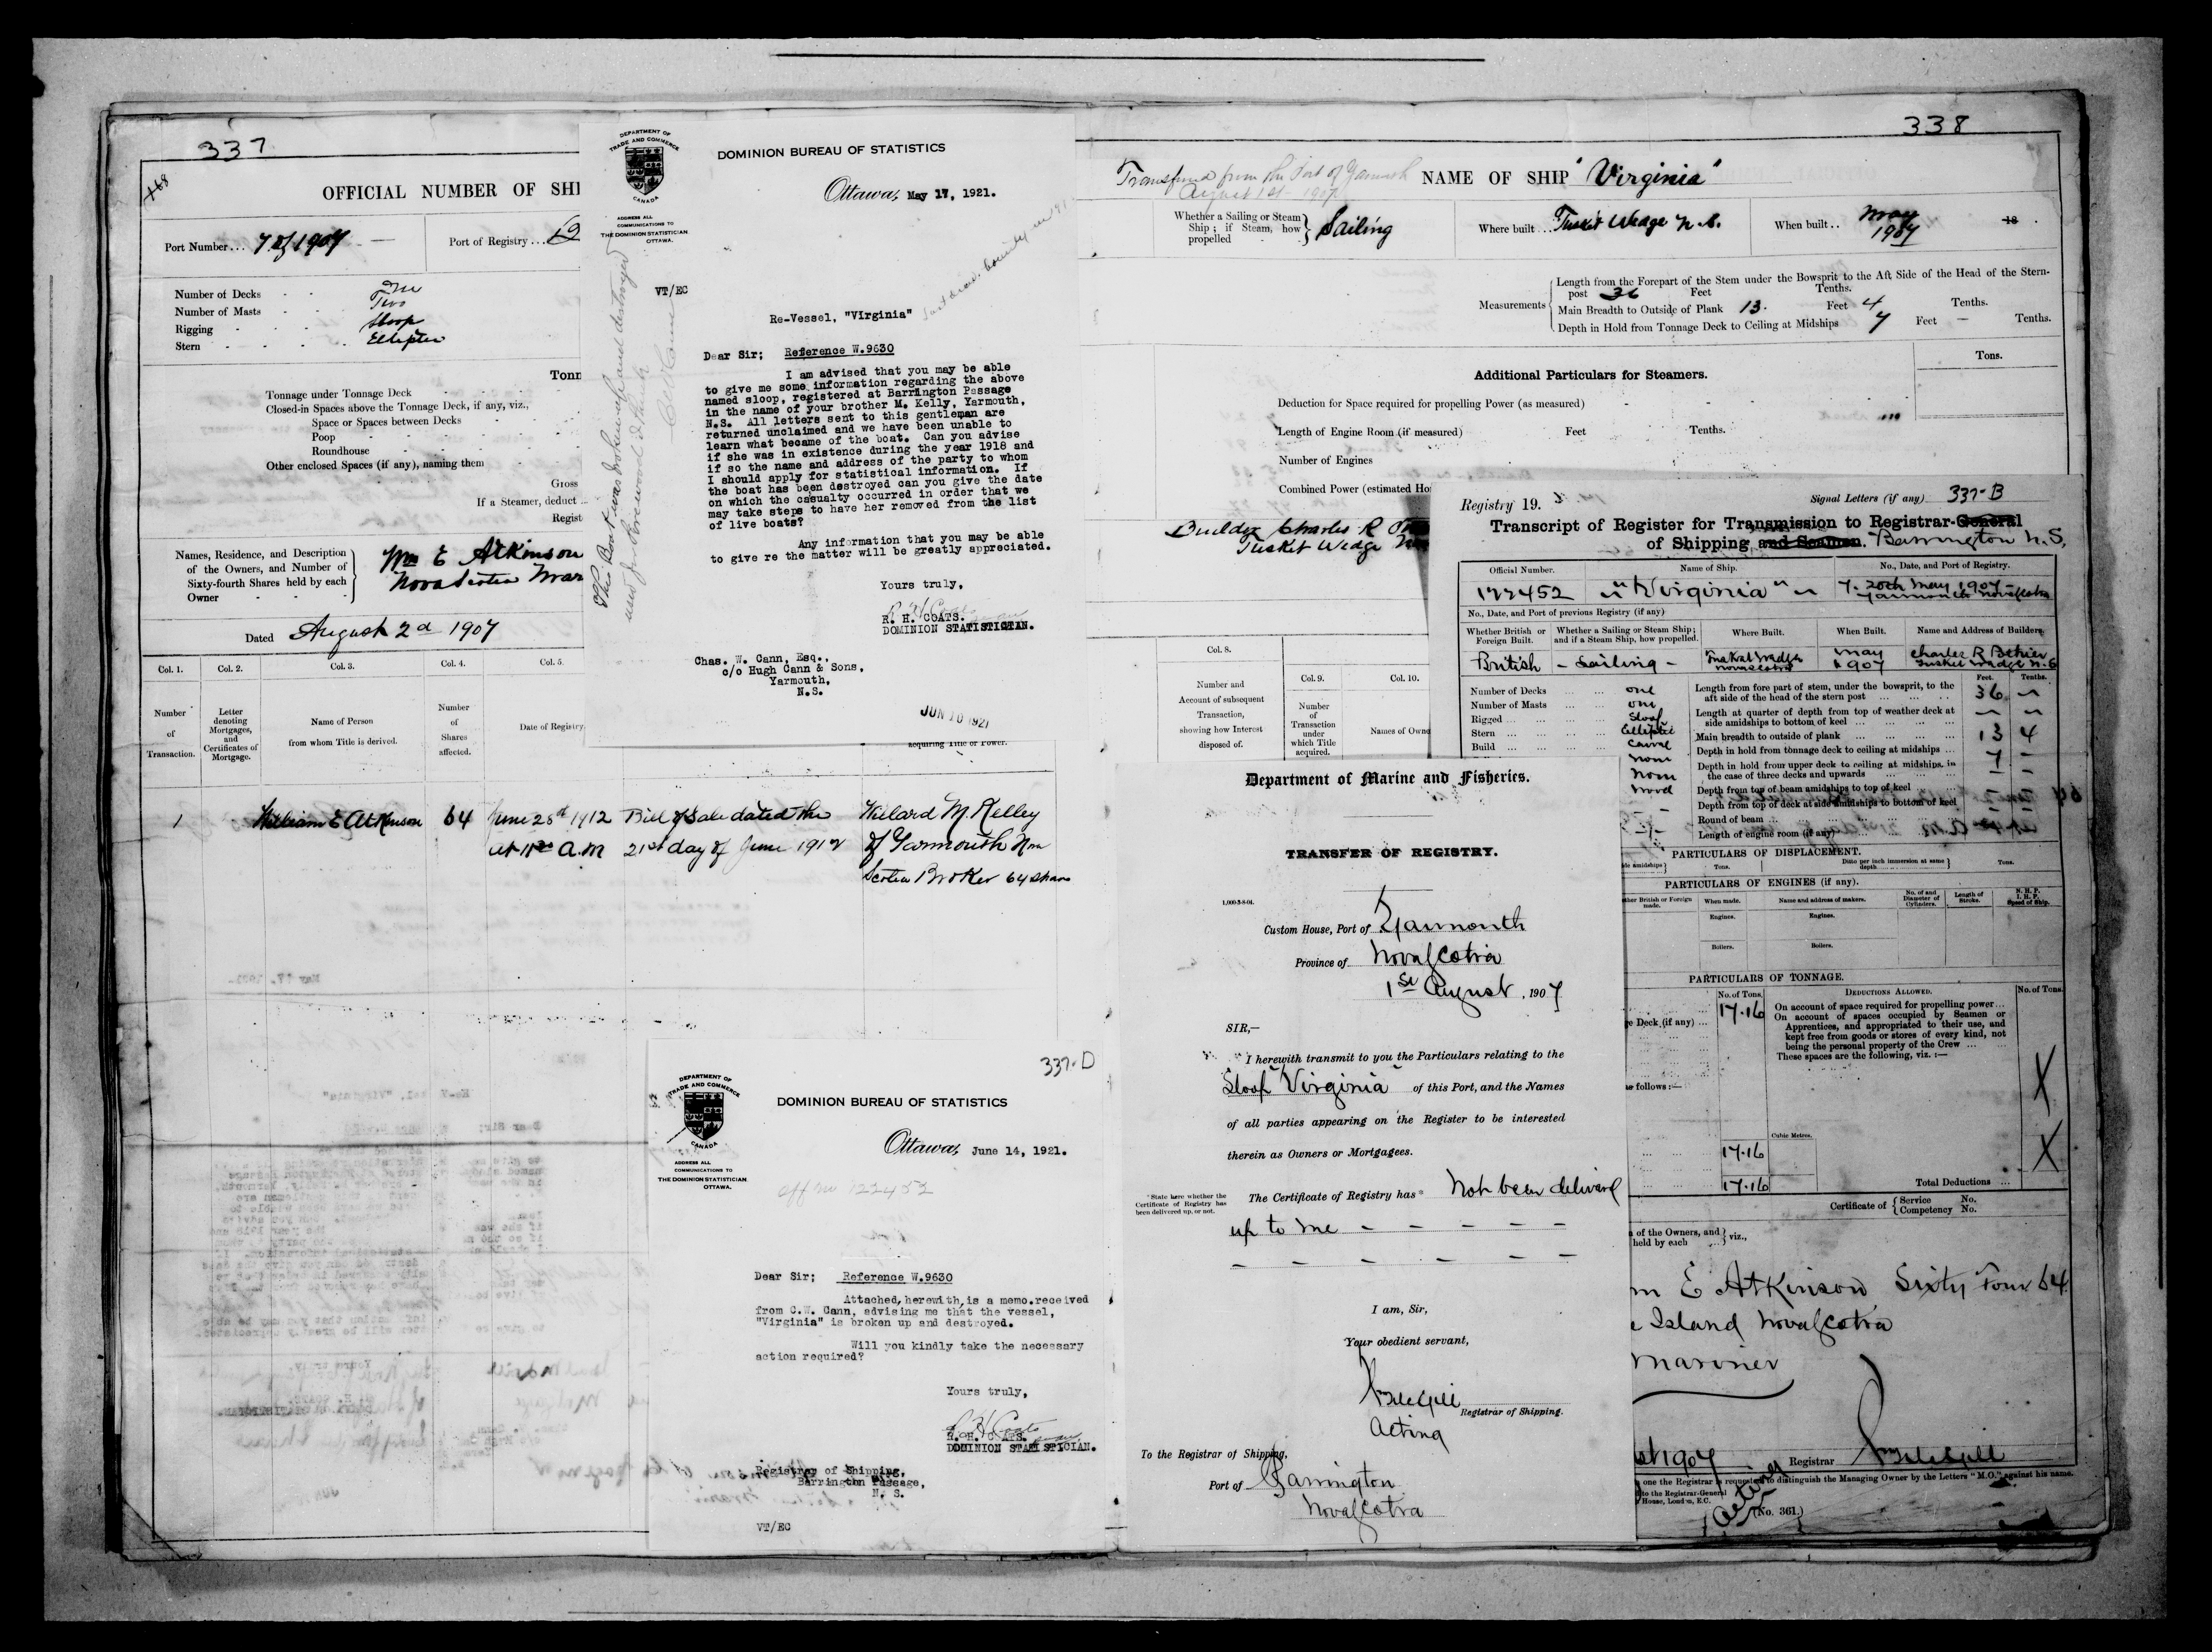 337
168
OFFICIAL NUMBER OF SHI
Port Number... 7 of 1907
Port of Registry...
Number of Decks One
Number of Masts Two
Rigging Sloop
Stern Elliptic
Tonn
Tonnage under Tonnage Deck
Closed-in Spaces above the Tonnage Deck, if any, viz.,
Space or Spaces between Decks
Poop
Roundhouse
Other enclosed Spaces (if any), naming them
Gross
If a Steamer, deduct
Regist
Names, Residence, and Description of the Owners, and Number of Sixty-fourth Shares held by each Owner
Wm E Atkinson
Nova Scotia Mar
Dated August 2d 1907
Col. 1. Col. 2. Col. 3. Col. 4. Col. 5.
Number of Transaction.
Letter denoting Mortgages, and Certificates of Mortgage.
Name of Person from whom Title is derived.
Number of Shares affected.
Date of Registry
acquiring Title or Power.
1 William E Atkinson 64 June 28th 1912 Bill of Sale dated the Willard M. Kelley
at 11 A.M 21st day of June 1912 of Yarmouth Nova
Scotia Broker 64 shares
DEPARTMENT OF
TRADE AND COMMERCE
CANADA
ADDRESS ALL
COMMUNICATIONS TO
THE DOMINION STATISTICIAN
OTTAWA.
DOMINION BUREAU OF STATISTICS
Ottawa, May 17, 1921.
VT/EC
Re-Vessel, "Virginia"
Dear Sir; Reference W.9630
I am advised that you may be able
to give me some information regarding the above
named sloop, registered at Barrington Passage
in the name of your brother M. Kelly, Yarmouth,
N.S. All letters sent to this gentleman are
returned unclaimed and we have been unable to
learn what became of the boat. Can you advise
if she was in existence during the year 1918 and
if so the name and address of the party to whom
I should apply for statistical information. If
the boat has been destroyed can you give the date
on which the casualty occurred in order that we
may take steps to have her removed from the list
of live boats?
Any information that you may be able
to give re the matter will be greatly appreciated.
Yours truly,
R. H. COATS.
DOMINION STATISTICIAN.
Chas. W. Cann, Esq.,
c/o Hugh Cann & Sons,
Yarmouth,
N.S.
JUN 10 1921
This Boat was broken up and destroyed
used for firewood I think
C W Cann
337-D
DEPARTMENT OF
TRADE AND COMMERCE
CANADA
ADDRESS ALL
COMMUNICATIONS TO
THE DOMINION STATISTICIAN
OTTAWA.
DOMINION BUREAU OF STATISTICS
Ottawa, June 14, 1921.
off no 122452
Dear Sir; Reference W.9630
Attached, herewith, is a memo. received
from C.W. Cann, advising me that the vessel,
"Virginia" is broken up and destroyed.
Will you kindly take the necessary
action required?
Yours truly,
R. H. COATS.
DOMINION STATISTICIAN.
Registry of Shipping,
Barrington Passage,
N. S.
VT/EC
338
Transferred from the Port of Yarmouth
August 1st 1907
NAME OF SHIP "Virginia"
Whether a Sailing or Steam Ship; if Steam, how propelled Sailing
Where built... Tusket Wedge N.S.
When built.. May 1907 18
Measurements
Length from the Forepart of the Stem under the Bowsprit to the Aft Side of the Head of the Stern-
post 36 Feet Tenths.
Main Breadth to Outside of Plank 13. Feet 4 Tenths.
Depth in Hold from Tonnage Deck to Ceiling at Midships 7 Feet — Tenths.
Tons.
Additional Particulars for Steamers.
Deduction for Space required for propelling Power (as measured)
Length of Engine Room (if measured) Feet Tenths.
Number of Engines
Combined Power (estimated Ho
Builder Charles R
Tusket Wedge
Col. 8. Col. 9. Col. 10.
Number and Account of subsequent Transaction, showing how Interest disposed of.
Number of Transaction under which Title acquired.
Names of Owne
Department of Marine and Fisheries.
TRANSFER OF REGISTRY.
1,000-3-8-04.
Custom House, Port of Yarmouth
Province of Nova Scotia
1st August, 1907
SIR,—
I herewith transmit to you the Particulars relating to the
Sloop "Virginia" of this Port, and the Names
of all parties appearing on the Register to be interested
therein as Owners or Mortgagees.
*State here whether the Certificate of Registry has been delivered up, or not.
The Certificate of Registry has* Not been delivered
up to me
I am, Sir,
Your obedient servant,
Registrar of Shipping.
Acting
To the Registrar of Shipping,
Port of Barrington
Nova Scotia
Registry 19.
Signal Letters (if any) 337-B
Transcript of Register for Transmission to Registrar-General
of Shipping and Seamen. Barrington N.S.
Official Number. Name of Ship. No., Date, and Port of Registry.
122452 "Virginia" 7. 20th May 1907 - Yarmouth Nova Scotia
No., Date, and Port of previous Registry (if any)
Whether British or Foreign Built. Whether a Sailing or Steam Ship; and if a Steam Ship, how propelled. Where Built. When Built. Name and Address of Builders.
British - Sailing - Tusket Wedge Nova Scotia May 1907 Charles R Tusket Wedge N.S
Feet. Tenths.
Number of Decks one
Number of Masts one
Rigged Sloop
Stern Elliptic
Build Carvel
none
none
wood
Length from fore part of stem, under the bowsprit, to the aft side of the head of the stern post 36
Length at quarter of depth from top of weather deck at side amidships to bottom of keel
Main breadth to outside of plank 13 4
Depth in hold from tonnage deck to ceiling at midships 7
Depth in hold from upper deck to ceiling at midships, in the case of three decks and upwards
Depth from top of beam amidships to top of keel
Depth from top of deck at side amidships to bottom of keel
Round of beam
Length of engine room (if any)
PARTICULARS OF DISPLACEMENT.
Tons. Ditto per inch immersion at same depth Tons.
PARTICULARS OF ENGINES (if any).
ther British or Foreign made. When made. Name and address of makers. No. of and Diameter of Cylinders. Length of Stroke. N. H. P. I. H. P. Speed of Ship.
Engines. Engines.
Boilers. Boilers.
PARTICULARS OF TONNAGE.
No. of Tons. DEDUCTIONS ALLOWED. No. of Tons.
17.16
e Deck (if any)
On account of space required for propelling power...
On account of spaces occupied by Seamen or
Apprentices, and appropriated to their use, and
kept free from goods or stores of every kind, not
being the personal property of the Crew
These spaces are the following, viz. :—
as follows:—
Cubic Metres.
17.16
17.16
Total Deductions
Certificate of Service No. Competency No.
of the Owners, and
held by each viz.,
m E Atkinson Sixty Four 64
Island Nova Scotia
Mariner
ust 1907 Registrar
acting
one the Registrar is requested to distinguish the Managing Owner by the Letters "M.O." against his name.
to the Registrar-General
House, London, E.C.
(No. 361.)